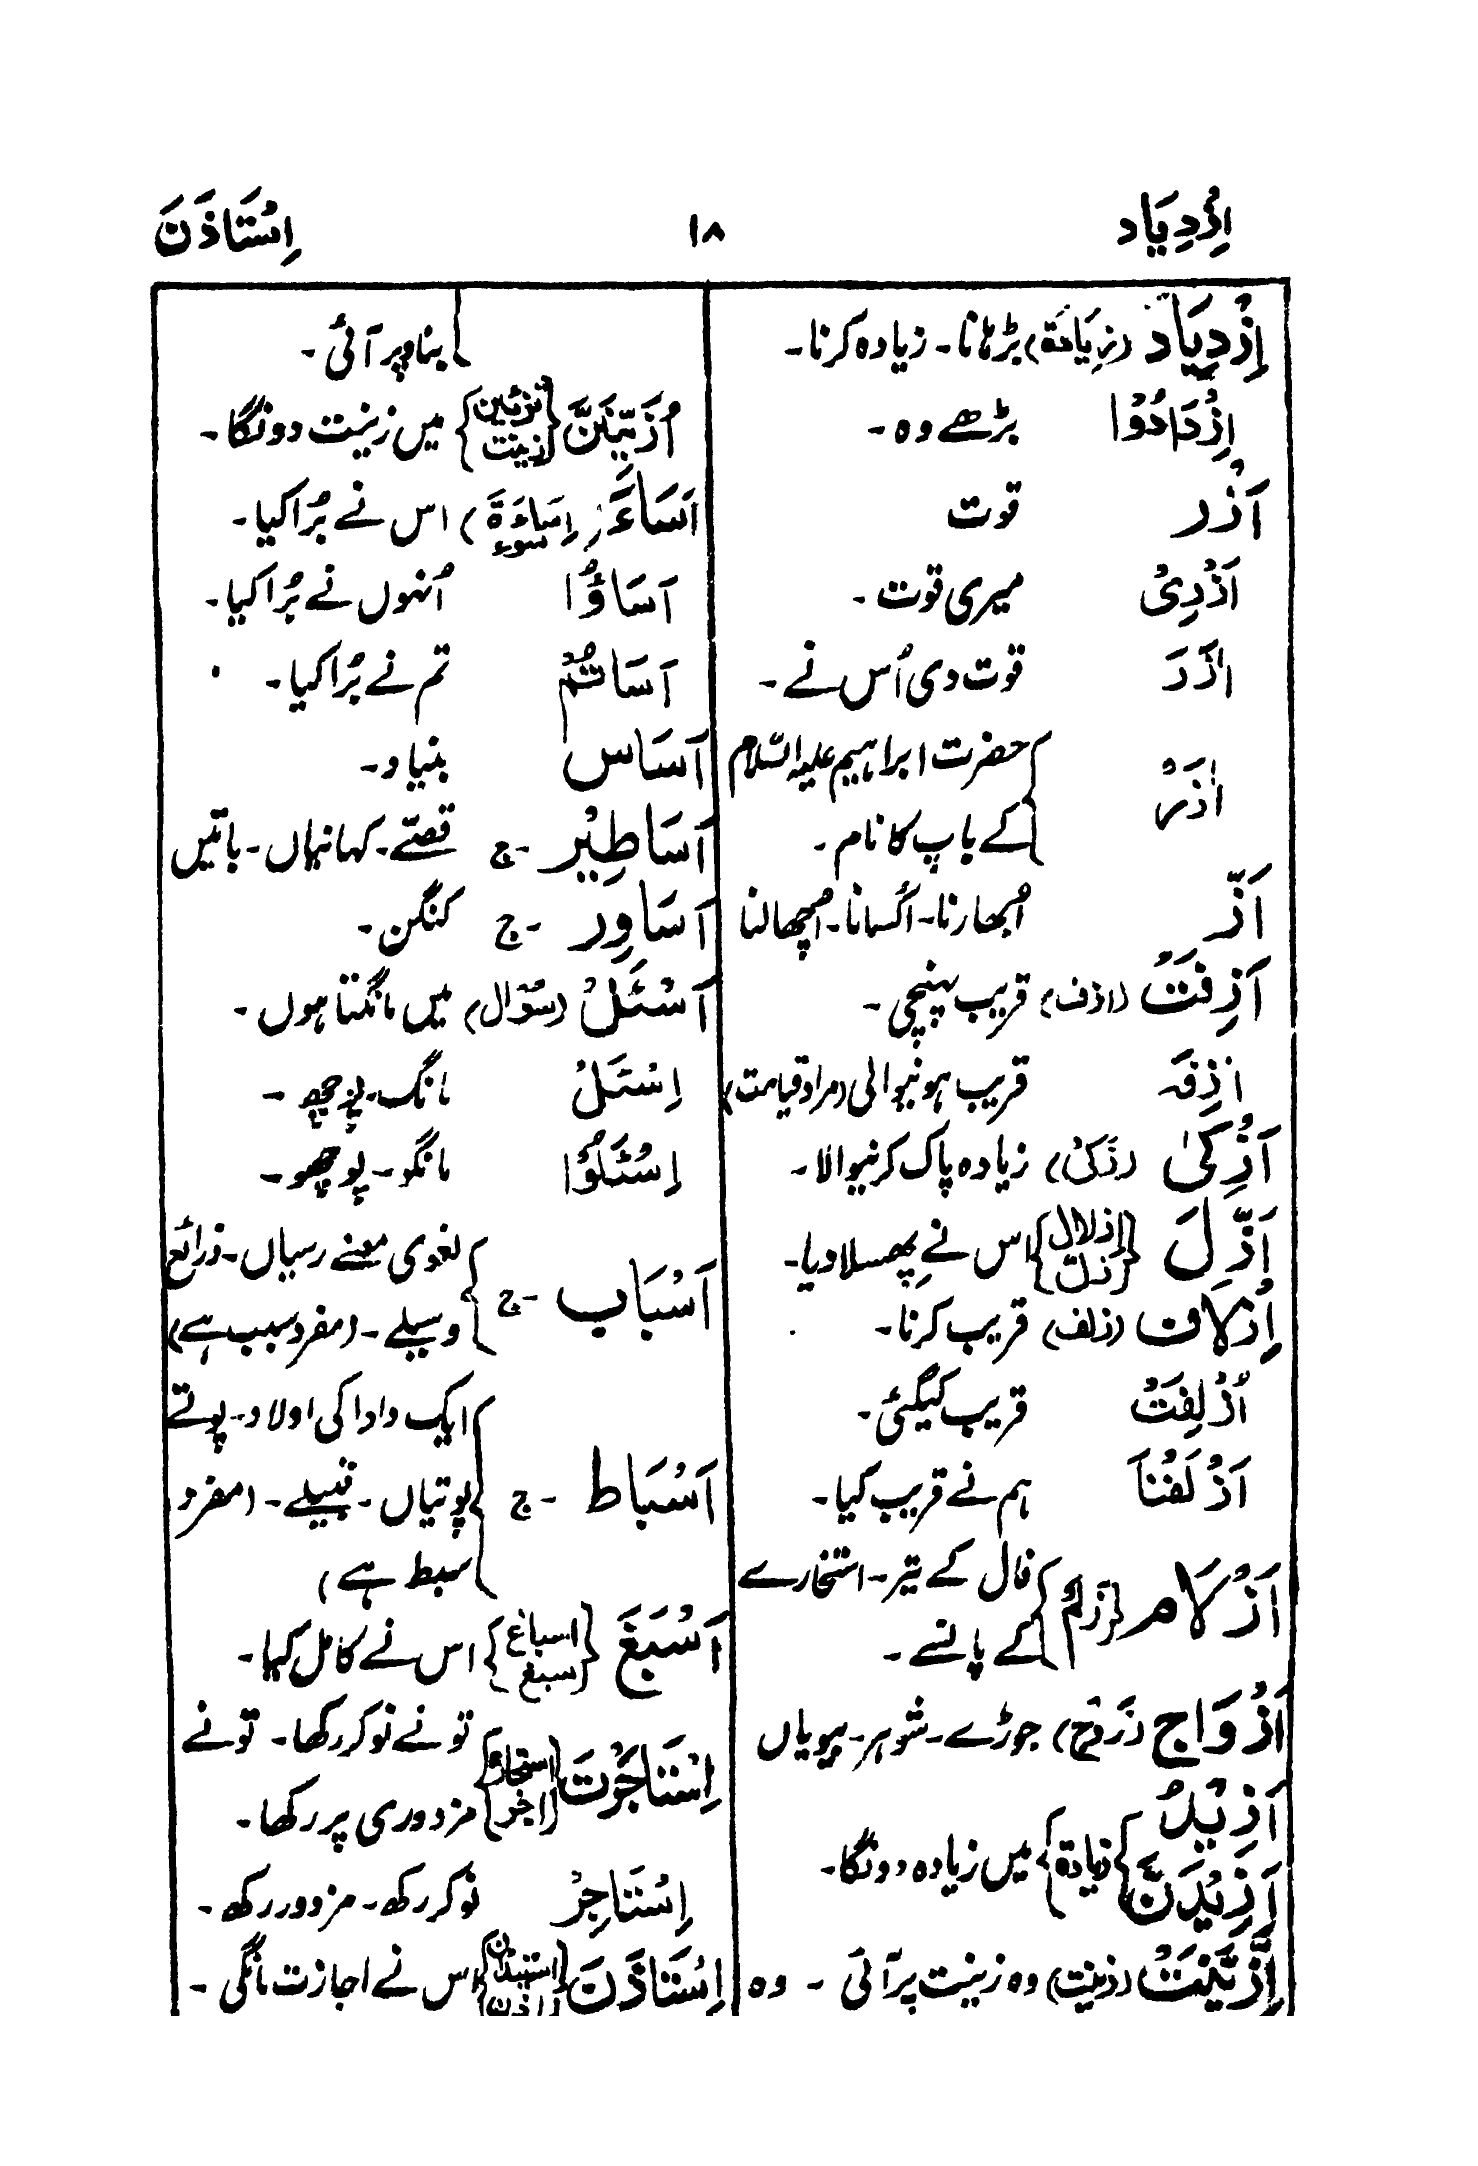 اِزْدِیَاد ۱۸ اِسْتَاذَنَ
اِزْدِیَاد (زِیَادَة) بڑھانا۔ زیادہ کرنا۔
اِزْدَادُوْا بڑھے وہ۔
اَزْر قوت
اَزْرِیْ میری قوت۔
اٰزَرَ قوت دی اُس نے۔
اٰزَرْ حضرت ابراہیم علیہ السّلام
کے باپ کا نام۔
اَزّ اُبھارنا۔ اُکسانا۔ اُچھالنا
اَزِفَتْ (ازف) قریب پہنچی۔
اٰزِفَه قریب ہونیوالی (مراد قیامت)
اَزْکیٰ (زَکیٰ) زیادہ پاک کرنیوالا۔
اَزَّلَ {ازلال زلت} اس نے پھسلا دیا۔
اِزْلَاف (زلف) قریب کرنا۔
اُزْلِفَتْ قریب کیگئی۔
اَزْلَفْنَا ہم نے قریب کیا۔
اَزْلَام {زَلَم} فال کے تیر۔ استخارے
کے پانسے۔
اَزْوَاج (زَوْج) جوڑے۔ شوہر۔ بیویاں
اَزِیْدُ
اَزِیْدَنَّ {زیادة} میں زیادہ دونگا۔
اِزَّیَّنَتْ (زینت) وہ زینت پر آئی۔ وہ
بناؤ پر آئی۔
اُزَیِّنَنَّ {تزئین زینت} میں زینت دونگا۔
اَسَاءَ (اِسَاءَة سوء) اس نے بُرا کیا۔
اَسَاؤُا اُنہوں نے بُرا کیا۔
اَسَاتُمْ تم نے بُرا کیا۔
اَسَاس بنیاد۔
اَسَاطِیْر ۔ج قصّے۔ کہانیاں۔ باتیں
اَسَاوِر ۔ج کنگن۔
اَسْئَلُ (سُؤال) میں مانگتا ہوں۔
اِسْئَلْ مانگ۔ پوچھ۔
اِسْئَلُوْا مانگو۔ پوچھو۔
اَسْبَاب ۔ج لغوی معنے رسیاں۔ ذرائع
وسیلے۔ (مفرد سبب ہے)
اَسْبَاط ۔ج ایک دادا کی اولاد۔ پوتے
پوتیاں۔ قبیلے۔ (مفرد
سبط ہے)
اَسْبَغَ {اسباغ سبغ} اس نے کامل کیا۔
اِسْتَاجَرْتَ {استجار اجر} تو نے نوکر رکھا۔ تو نے
مزدوری پر رکھا۔
اِسْتَاجِرْ نوکر رکھ۔ مزدور رکھ۔
اِسْتَاذَنَ {استیذان اذن} اس نے اجازت مانگی۔